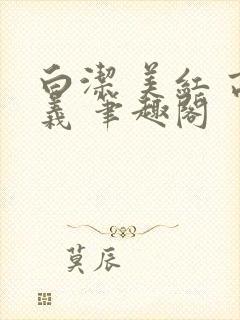 白潔 美红 高
義 笔趣阁
莫辰